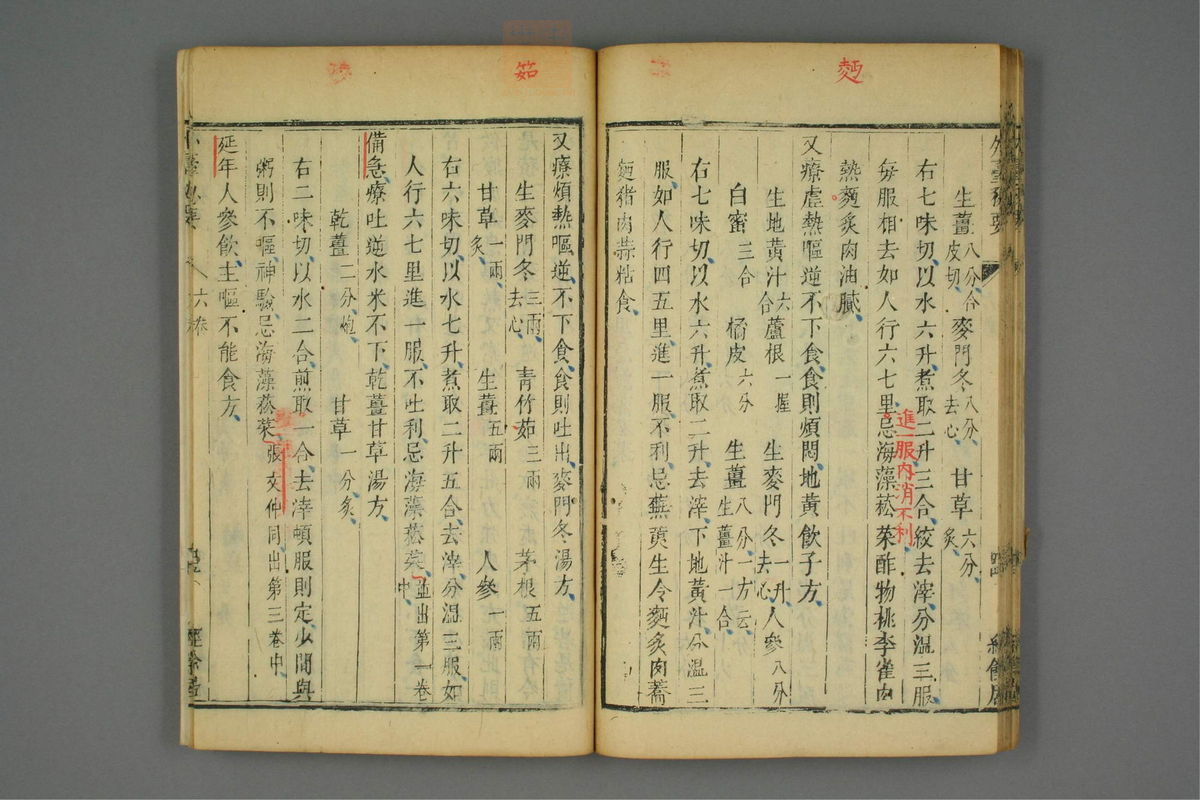 麪
外臺秘要
生薑八分合皮切 麥門冬八分去心 甘草六分炙
右七味切以水六升煮取二升三合絞去滓分温三服
每服相去如人行六七里忌海藻菘菜酢物桃李雀肉
進一服內消不利
熱麪炙肉油膩
又療虛熱嘔逆不下食食則煩悶地黃飲子方
生地黃汁六合 蘆根一握 生麥門冬一升去心 人參八分
白蜜三合 橘皮六分 生薑八分一方云生薑汁一合
右七味切以水六升煮取二升去滓下地黃汁分温三
服如人行四五里進一服不利忌蕪荑生冷麪炙肉蕎
麪猪肉蒜粘食
茹
又療煩熱嘔逆不下食食則吐出麥門冬湯方
生麥門冬三兩去心 青竹茹三兩 茅根五兩
甘草一兩炙 生薑五兩 人參一兩
右六味切以水七升煮取二升五合去滓分温三服如
人行六七里進一服不吐利忌海藻菘菜並出第一卷中
備急療吐逆水米不下乾薑甘草湯方
乾薑二分炮 甘草一分炙
右二味切以水二合煎取一合去滓頓服則定少間與
粥則不嘔神驗忌海藻菘菜張文仲同出第三卷中
延年人參飲主嘔不能食方
六卷